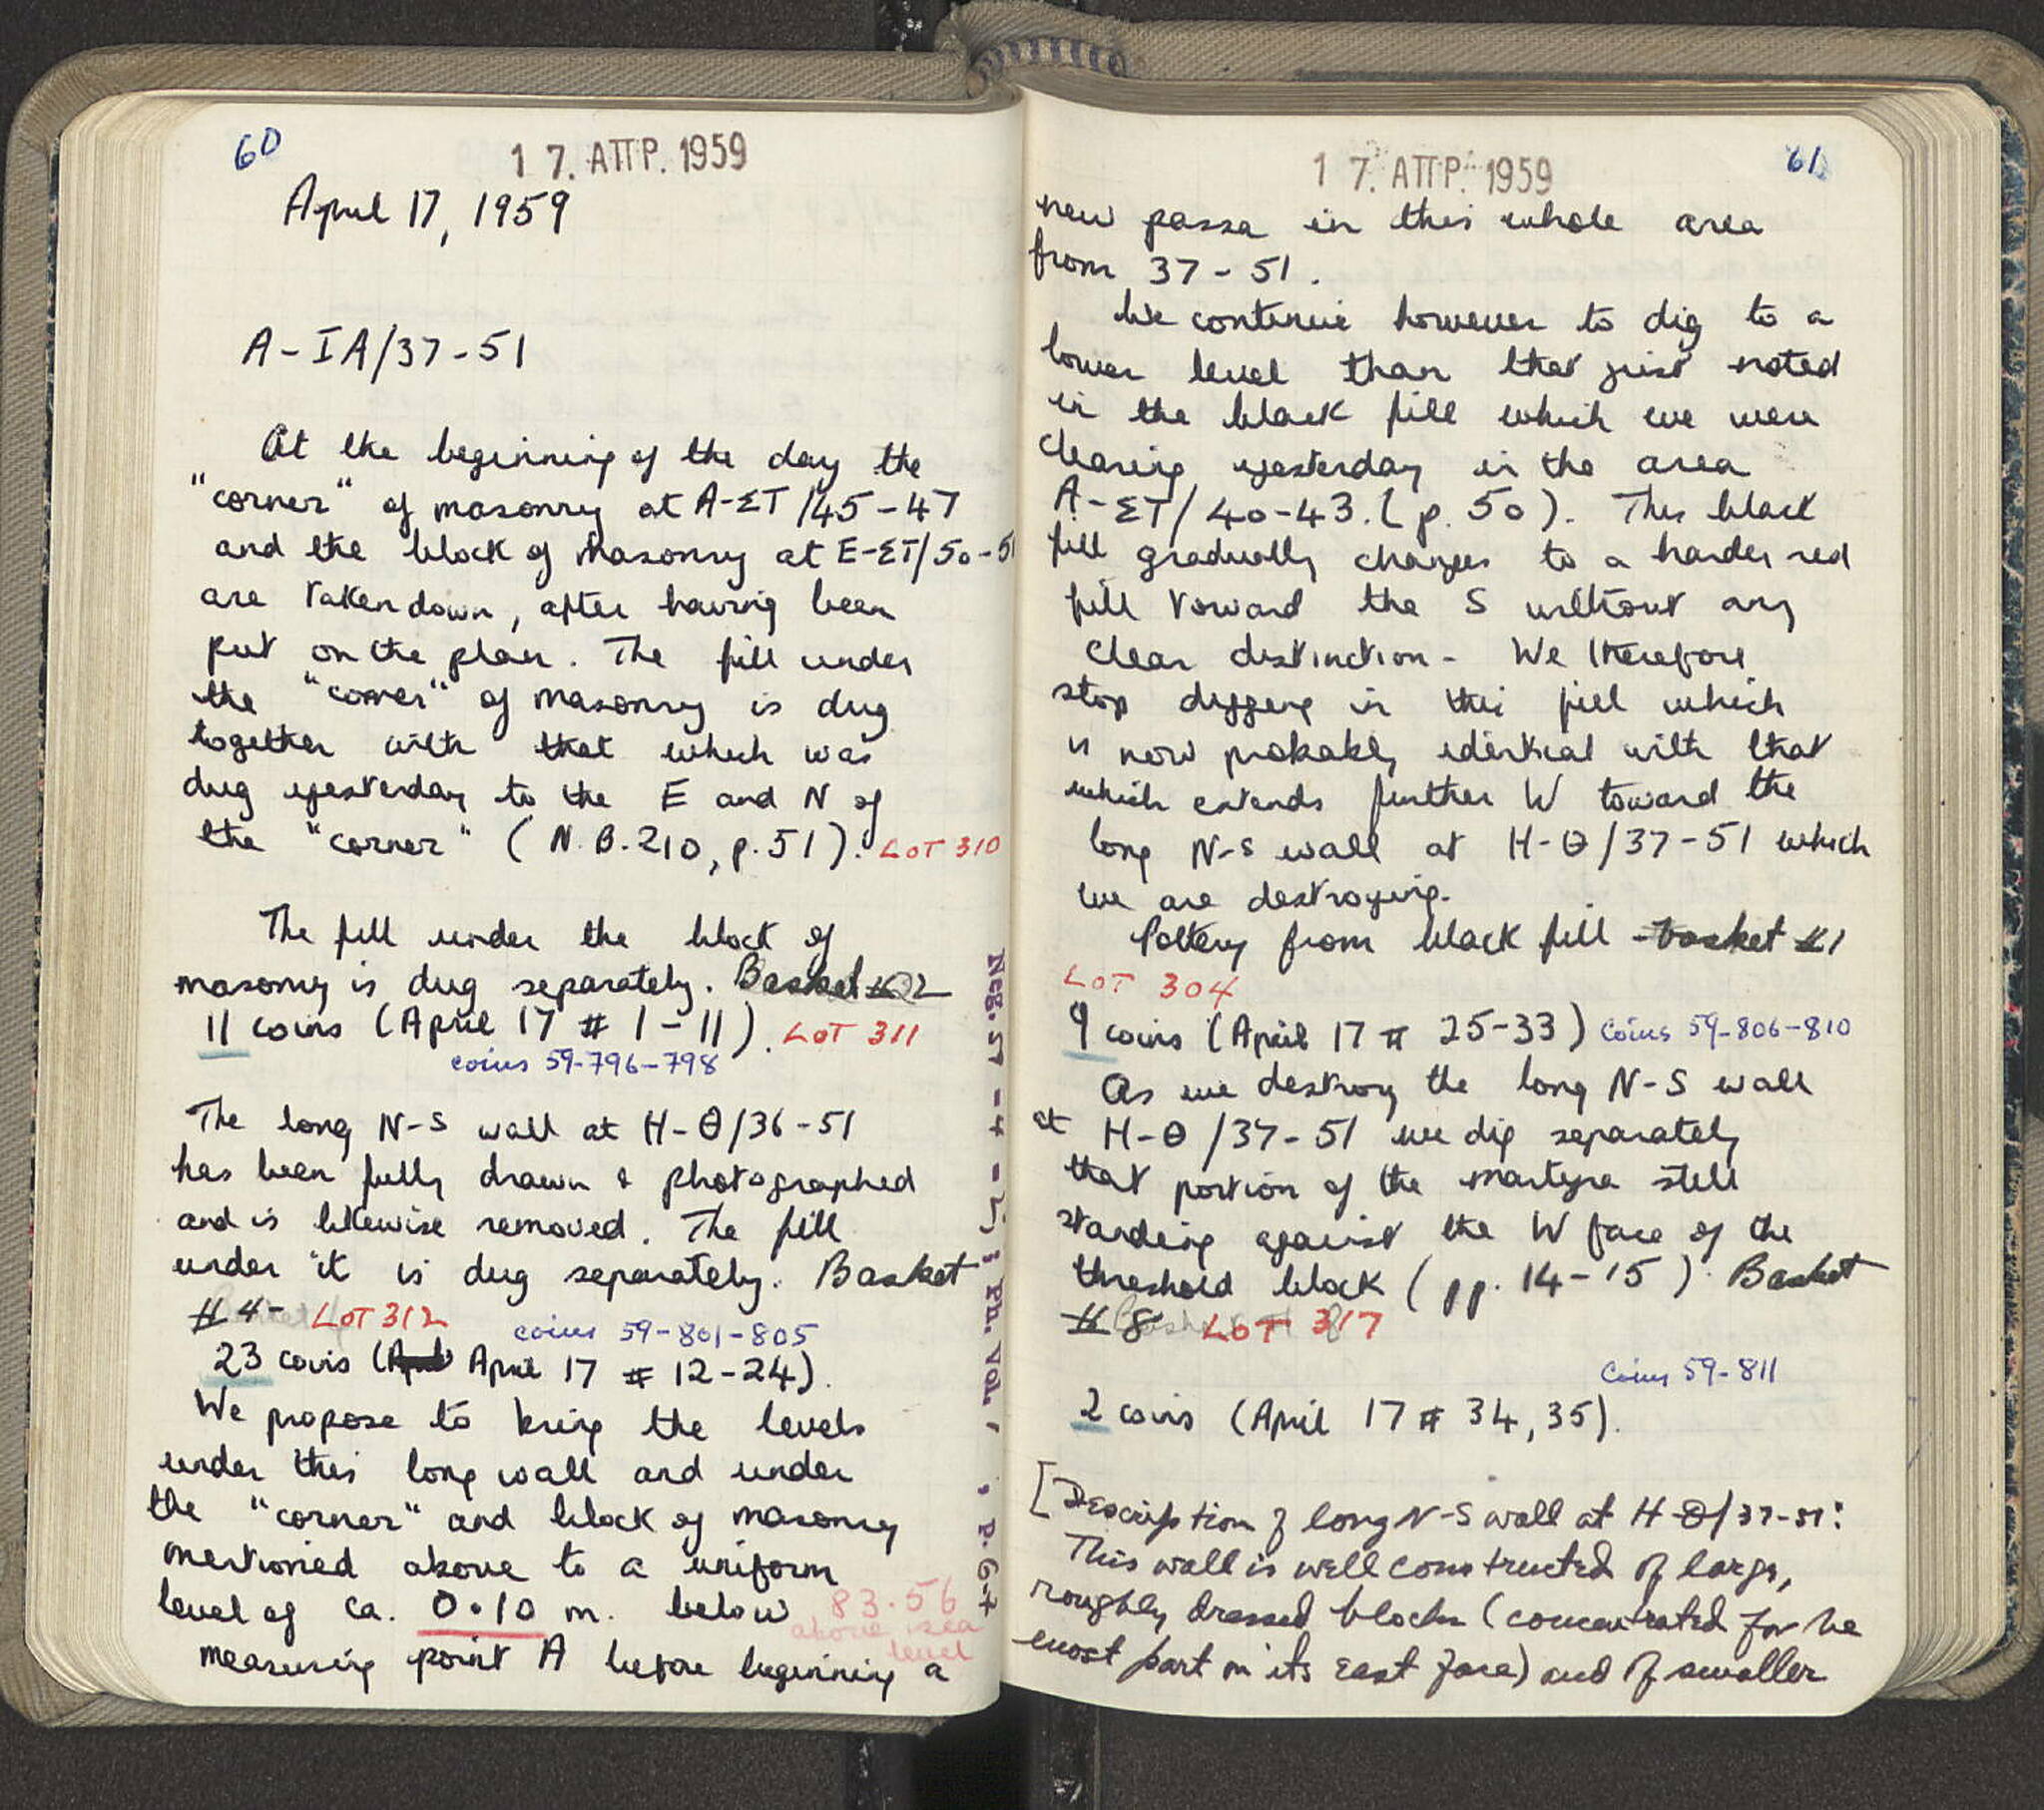 60
17. ΑΠΡ. 1959
April 17, 1959
A-IA/37-51
At the beginning of the day the
"corner" of masonry at A-ΣT/45-47
and the block of masonry at E-ΣT/50-51
are taken down, after having been
put on the plan. The fill under
the "corner" of masonry is dug
together with that which was
dug yesterday to the E and N of
the "corner" (N.B. 210, p. 51). LOT 310
The fill under the block of
masonry is dug separately. Basket #2
11 coins (April 17 # 1-11). LOT 311
coins 59-796-798
The long N-S wall at H-Θ/36-51
has been fully drawn & photographed
and is likewise removed. The fill
under it is dug separately. Basket
#4- LOT 312
coins 59-801-805
23 coins (April 17 # 12-24).
We propose to bring the levels
under this long wall and under
the "corner" and block of masonry
mentioned above to a uniform
level of ca. 0.10 m. below
83.56
above sea
level
measuring point A before beginning a
Neg. 57-4-5; Ph. Vol. , , P. 67
17. ΑΠΡ. 1959
61
new passa in this whole area
from 37-51.
We continue however to dig to a
lower level than that just noted
in the black fill which we were
clearing yesterday in the area
A-ΣT/40-43. (p. 50). This black
fill gradually changes to a harder red
fill toward the S without any
clear distinction - We therefore
stop digging in this fill which
is now probably identical with that
which extends further W toward the
long N-S wall at H-Θ/37-51 which
we are destroying.
Pottery from black fill - basket #1
LOT 304
9 coins (April 17 # 25-33) Coins 59-806-810
As we destroy the long N-S wall
at H-Θ/37-51 we dig separately
that portion of the martyra still
standing against the W face of the
threshold block (pp. 14-15). Basket
#8 LOT 317
Coins 59-811
2 coins (April 17 # 34, 35).
[Description of long N-S wall at H-Θ/37-51:
This wall is well constructed of large,
roughly dressed blocks (concentrated for the
most part on its east face) and of smaller